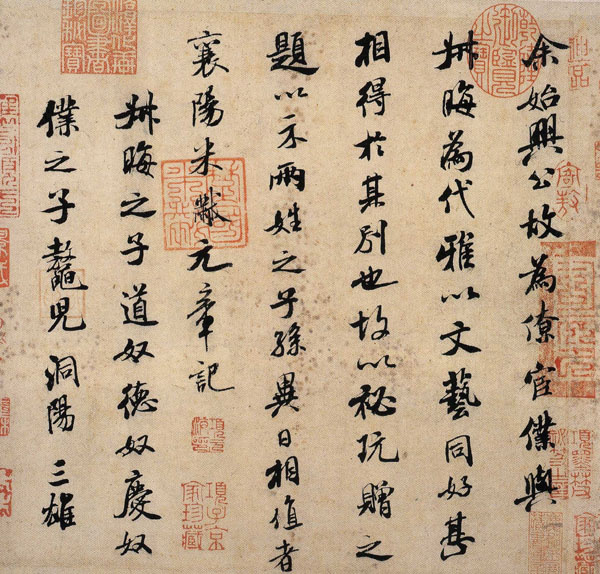 余始興公故為僚宦僕與
叔晦為代雅以文藝同好甚
相得於其別也故以秘玩贈之
題以示兩姓之子孫異日相值者
襄陽米黻元章記
叔晦之子道奴德奴慶奴
僕之子鼇兒洞陽三雄
項子京家珍藏